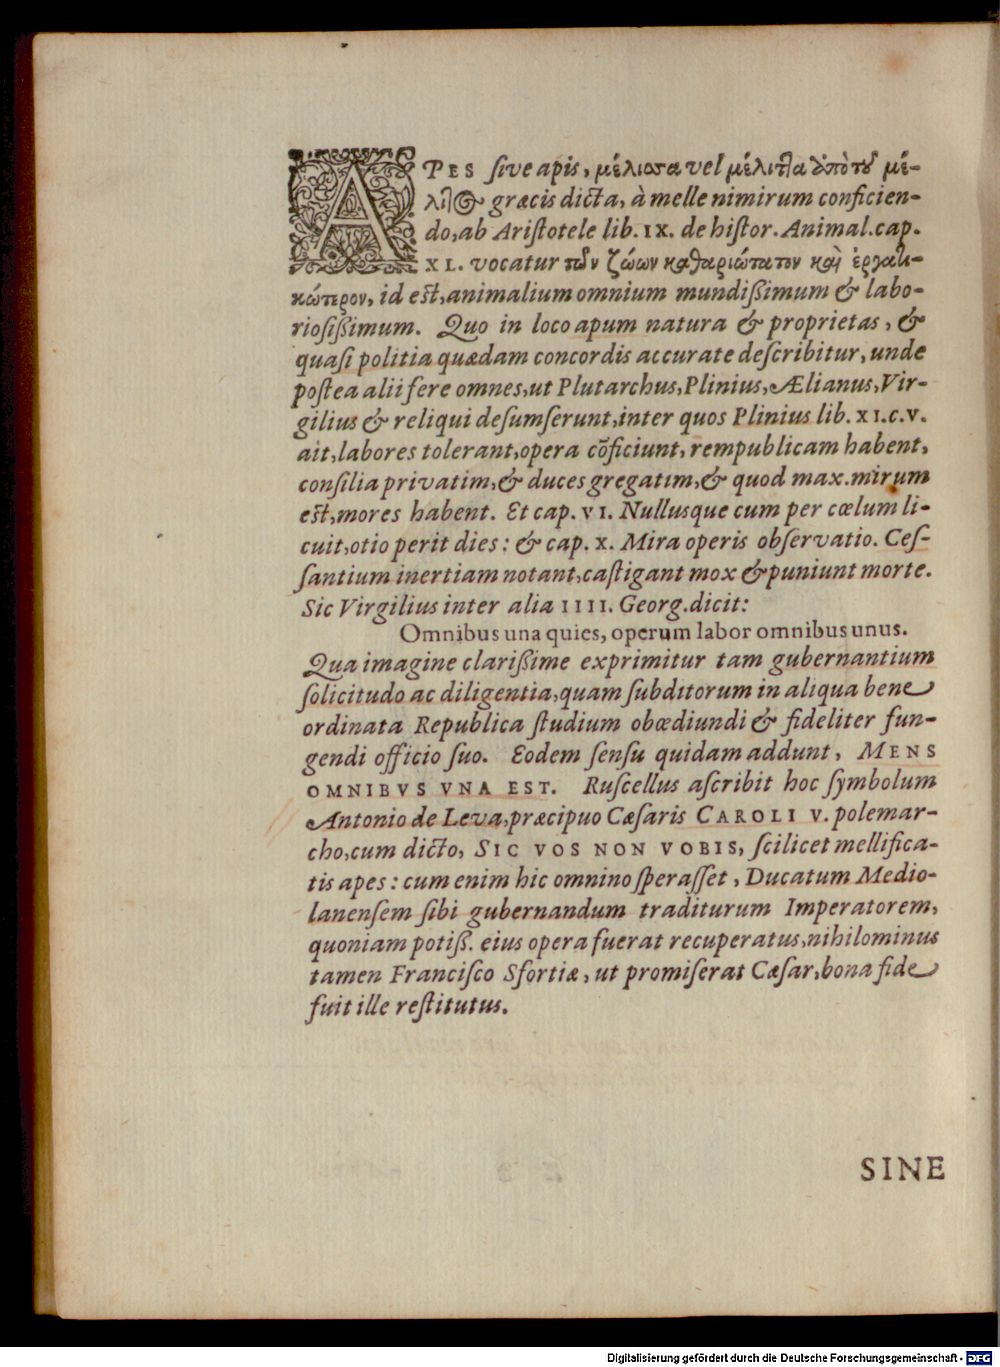 APES ſive apis, μέλισσα vel μέλιττα ἀπὸ τοῦ μέ-
λιτος græcis dicta, à melle nimirum conficien-
do, ab Ariſtotele lib. IX. de hiſtor. Animal. cap.
XL. vocatur τῶν ζώων καθαριώτατον καὶ ἐργατι-
κώτερον, id eſt, animalium omnium mundiſſimum & labo-
rioſiſſimum. Quo in loco apum natura & proprietas, &
quaſi politia quædam concordis accurate deſcribitur, unde
poſtea alii fere omnes, ut Plutarchus, Plinius, Ælianus, Vir-
gilius & reliqui deſumſerunt, inter quos Plinius lib. XI. c. V.
ait, labores tolerant, opera cõficiunt, rempublicam habent,
conſilia privatim, & duces gregatim, & quod max. mirum
eſt, mores habent. Et cap. VI. Nullusque cum per cœlum li-
cuit, otio perit dies: & cap. X. Mira operis obſervatio. Ceſ-
ſantium inertiam notant, caſtigant mox & puniunt morte.
Sic Virgilius inter alia IIII. Georg. dicit:
Omnibus una quies, operum labor omnibus unus.
Qua imagine clariſſime exprimitur tam gubernantium
ſolicitudo ac diligentia, quam ſubditorum in aliqua bene
ordinata Republica ſtudium obœdiundi & fideliter fun-
gendi officio ſuo. Eodem ſenſu quidam addunt, MENS
OMNIBVS VNA EST. Ruſcellus aſcribit hoc ſymbolum
Antonio de Leva, præcipuo Cæſaris CAROLI V. polemar-
cho, cum dicto, SIC VOS NON VOBIS, ſcilicet mellifica-
tis apes: cum enim hic omnino ſperaſſet, Ducatum Medio-
lanenſem ſibi gubernandum traditurum Imperatorem,
quoniam potiſſ. eius opera fuerat recuperatus, nihilominus
tamen Franciſco Sfortiæ, ut promiſerat Cæſar, bona fide
fuit ille reſtitutus.
SINE
Digitalisierung gefördert durch die Deutsche Forschungsgemeinschaft - DFG